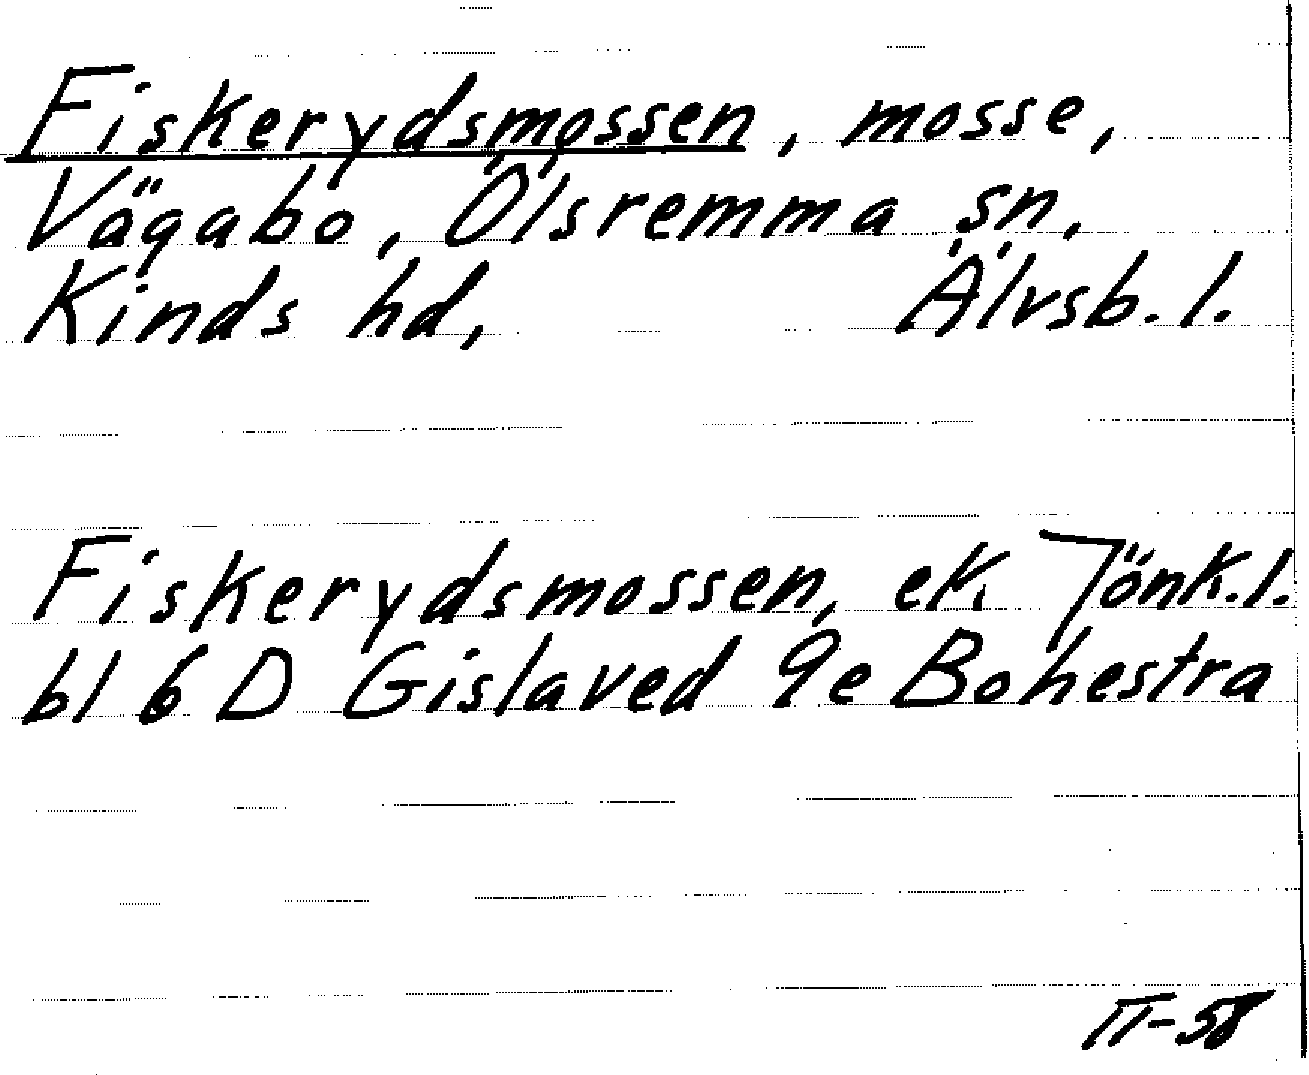 Fiskerydsmossen, mosse,
Vägabo, Ölsremma sn,
Kinds hd, Älvsb. l.
Fiskerydsmossen, ek. Jönk. l.
bl 6 D Gislaved 9e Bohestra
II-58